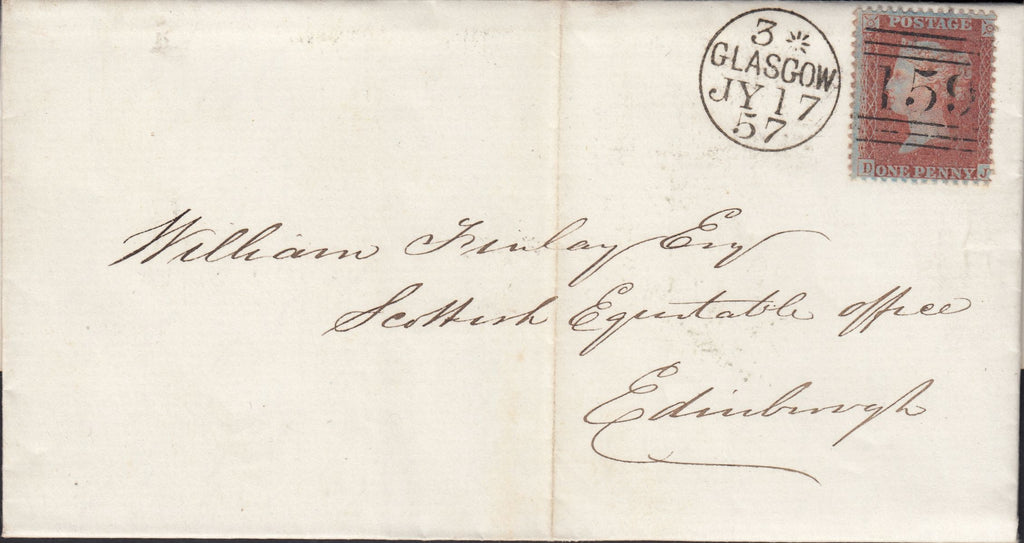 3
GLASGOW
JY 17
57
POSTAGE
159
D ONE PENNY J
William Finlay Esq
Scottish Equitable office
Edinburgh